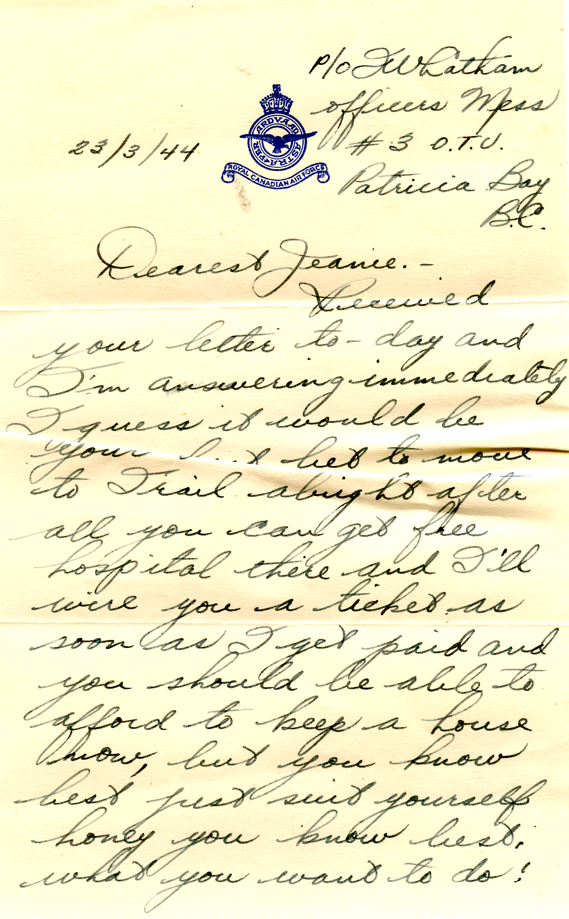 P/O J Whatham
Officers Mess
23/3/44
# 3 O.T.U.
Patricia Bay
B.C.
PER ARDVA AD ASTRA
ROYAL CANADIAN AIR FORCE
Dearest Jeanie. –
Received
your letter to-day and
I'm answering immediately
I guess it would be
your bet to move
to Trail alright after
all you can get free
hospital there and I'll
wire you a ticket as
soon as I get paid and
you should be able to
afford to keep a house
now, but you know
best just suit yourself
honey you know best.
what you want to do!